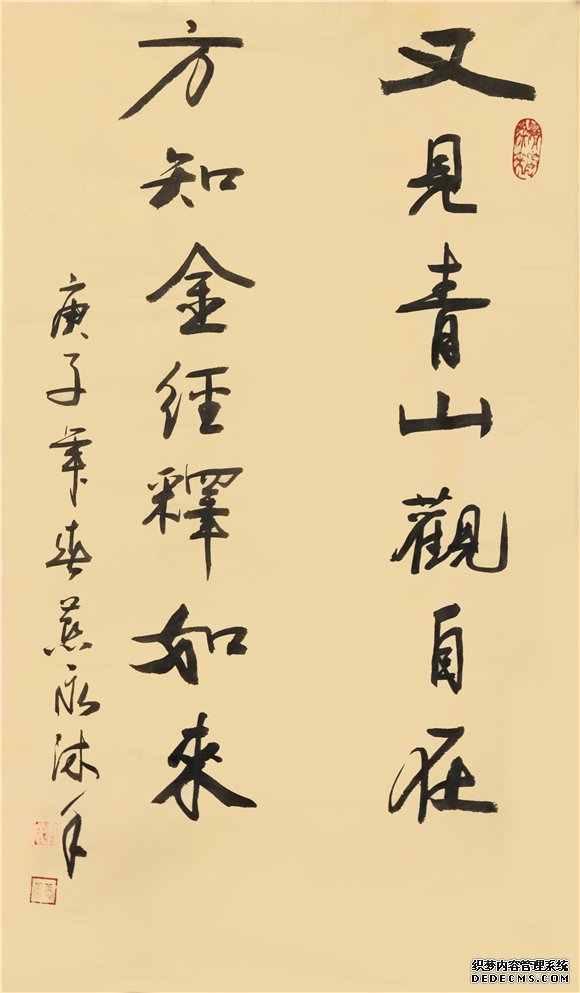 又見青山觀自在
方知金經釋如來
庚子年春燕永沐手
织梦内容管理系统
DEDECMS.COM